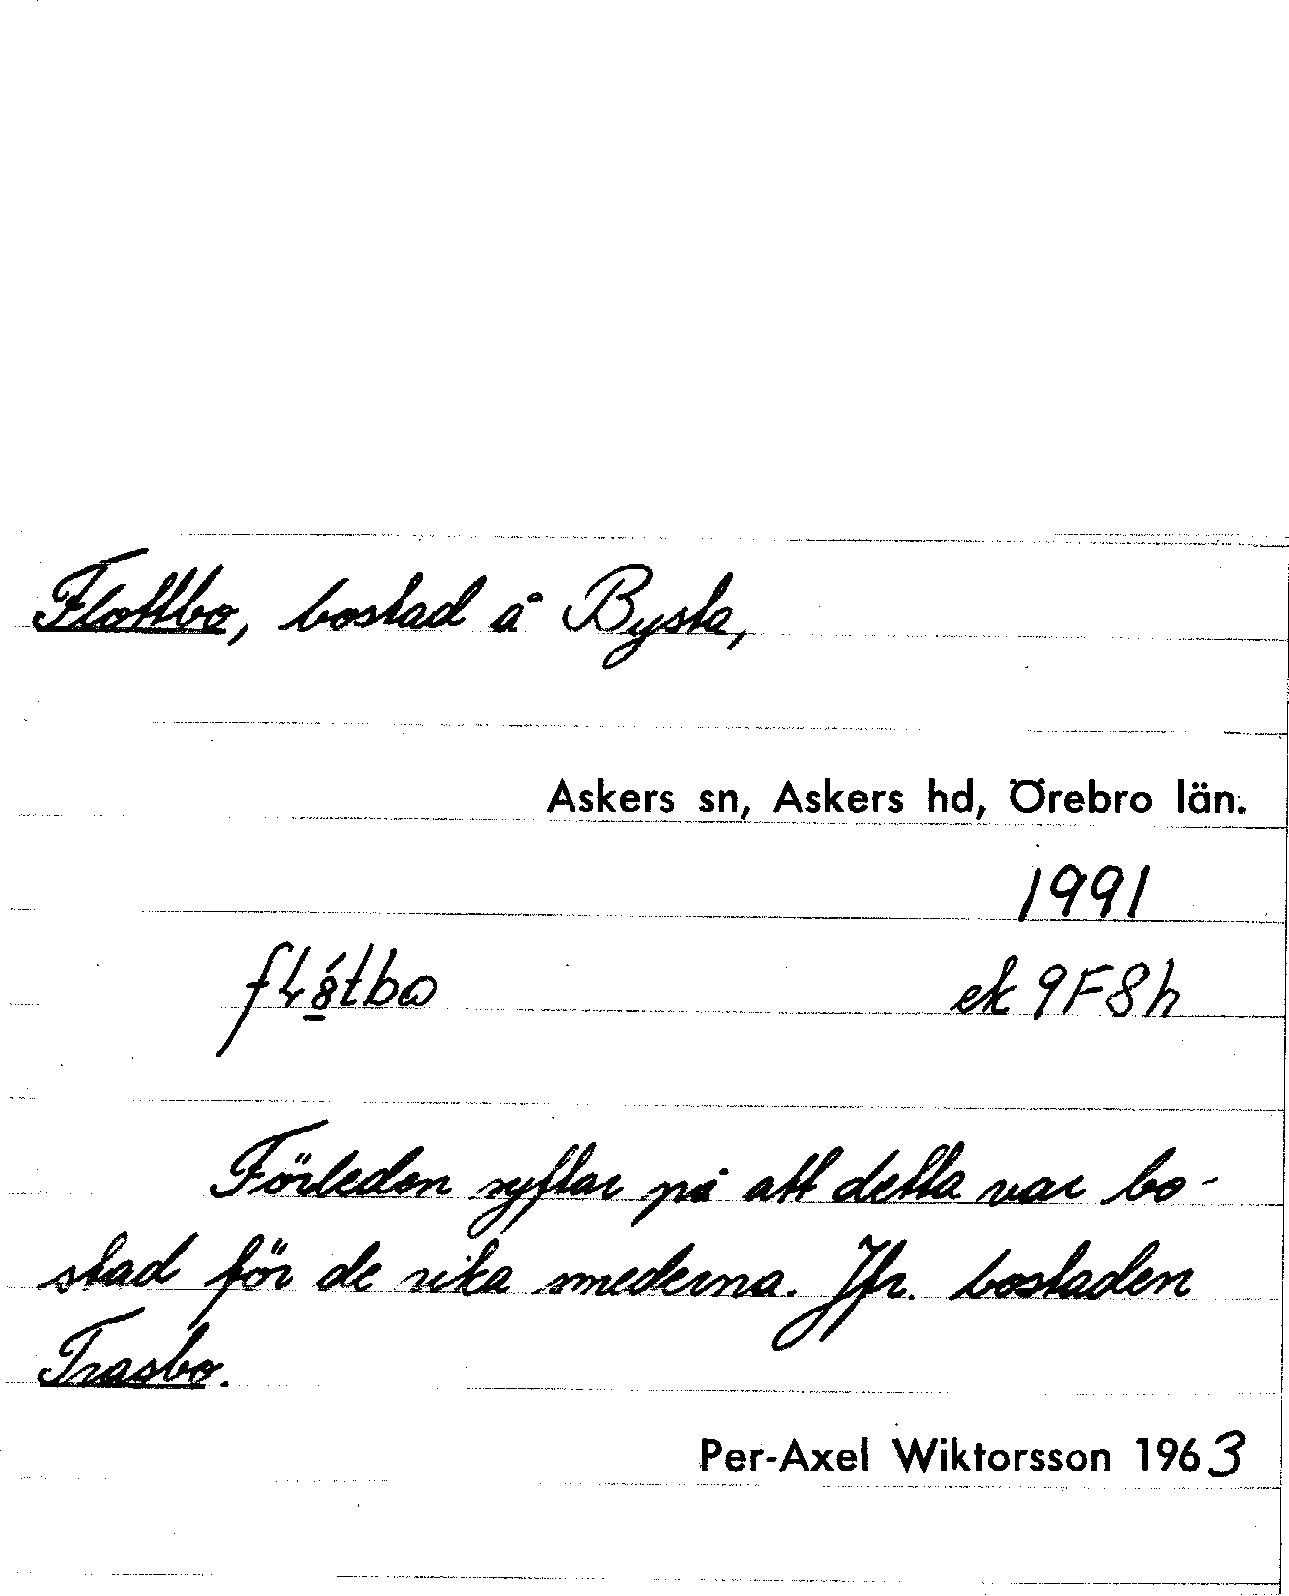 Flottbo, bostad å Bysta,
Askers sn, Askers hd, Örebro län.
1991
ek 9F8h
Förleden syftar på att detta var bo-
stad för de rika smederna. Jfr. bostaden
Trasbo.
Per-Axel Wiktorsson 1963